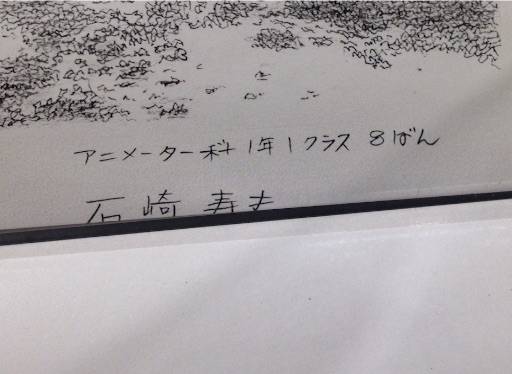 アニメーター科1年1クラス 8ばん
石崎寿夫